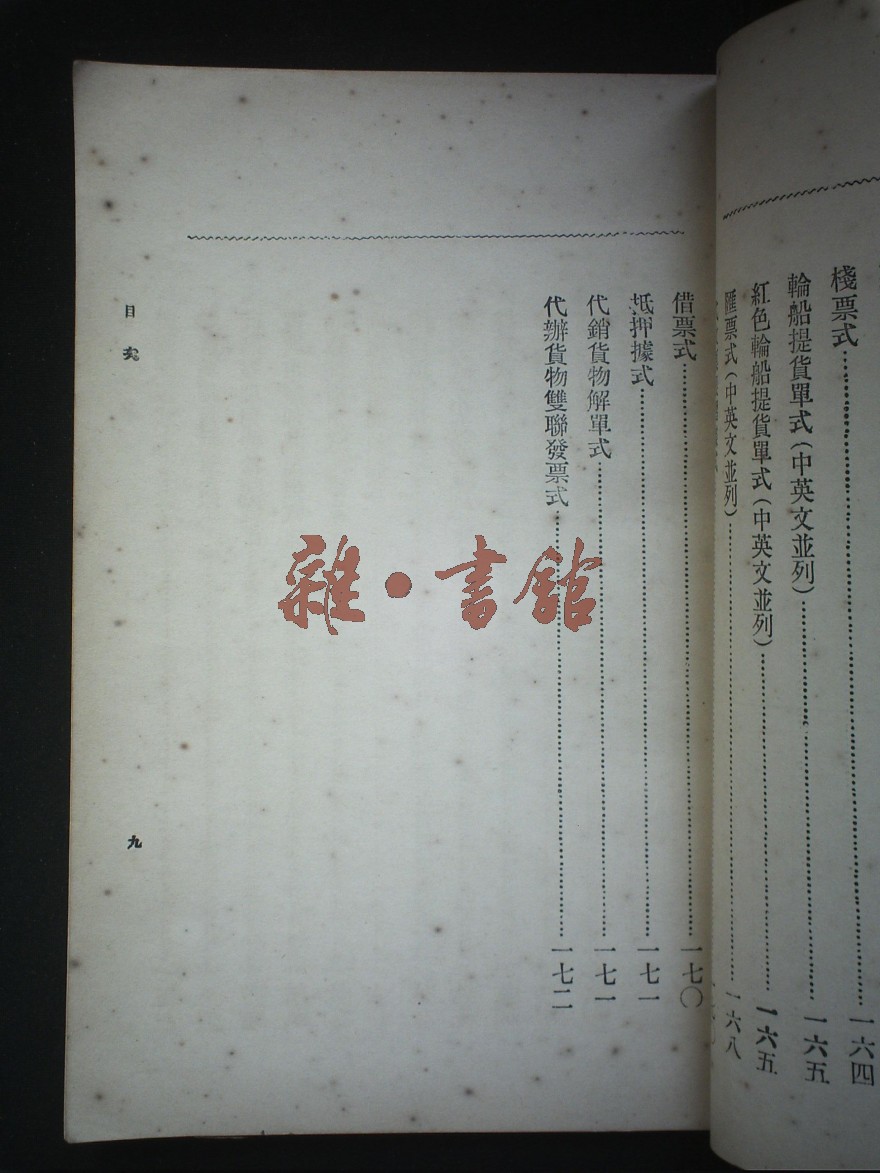 棧票式……一六四
輪船提貨單式(中英文並列)……一六五
紅色輪船提貨單式(中英文並列)……一六五
匯票式(中英文並列)……一六八
借票式……一七〇
抵押據式……一七一
代銷貨物解單式……一七一
代辦貨物雙聯發票式……一七二
目次
九
雜·書館